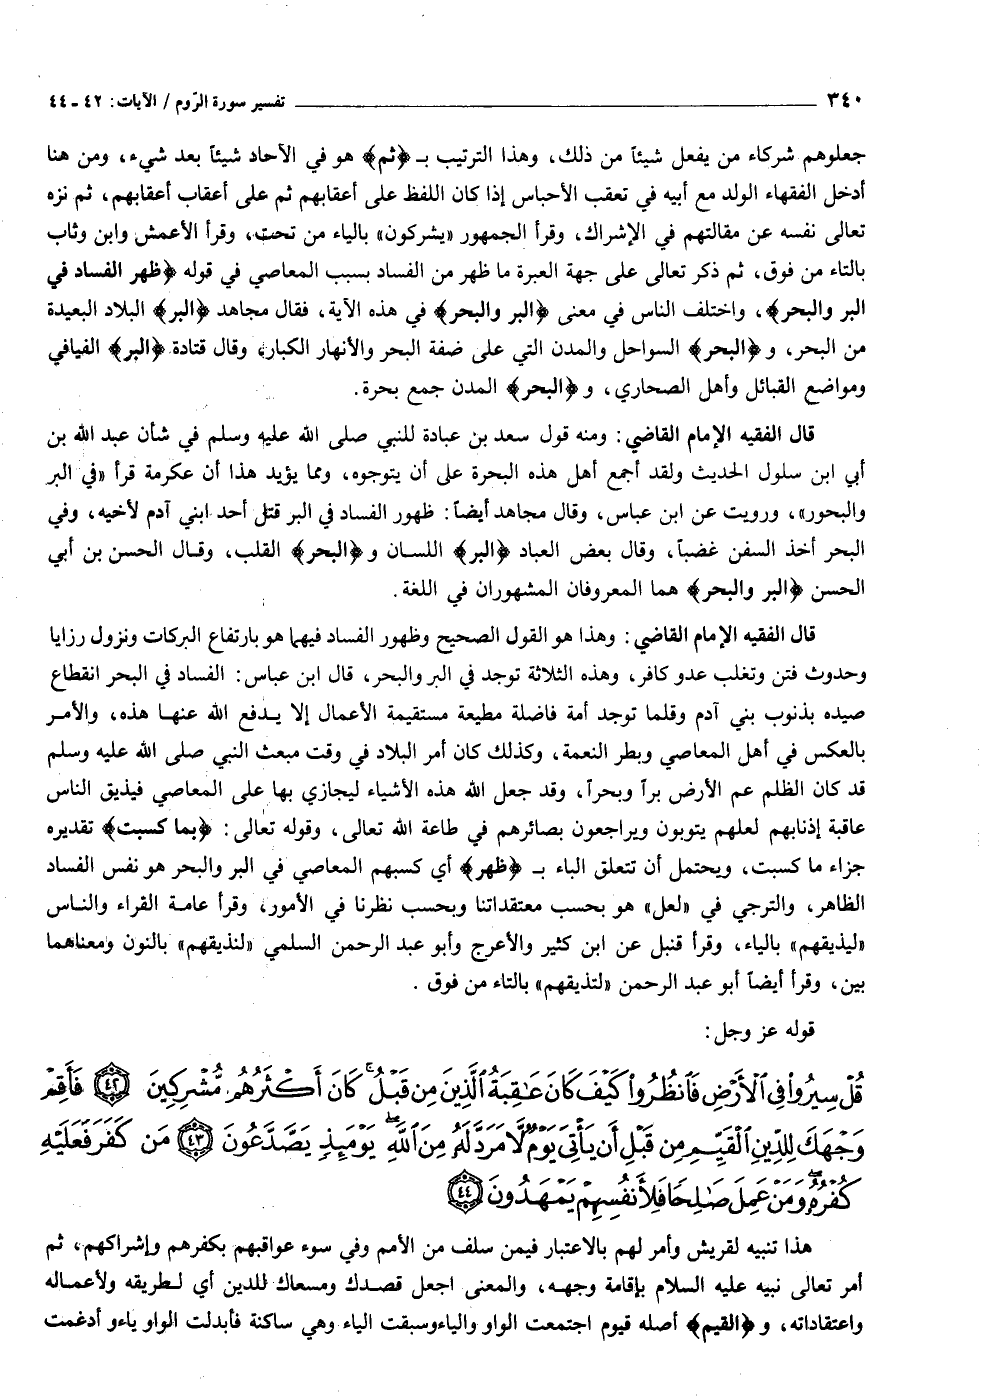 ٣٤٠ ـــــــــــــــــــــ تفسير سورة الرّوم / الآيات : ٤٢ - ٤٤
جعلوهم شركاء من يفعل شيئاً من ذلك، وهذا الترتيب بـ ﴿ثم﴾ هو في الآحاد شيئاً بعد شيء، ومن هنا
أدخل الفقهاء الولد مع أبيه في تعقب الأحباس إذا كان اللفظ على أعقابهم ثم على أعقاب أعقابهم، ثم نزه
تعالى نفسه عن مقالتهم في الإشراك، وقرأ الجمهور «يشركون» بالياء من تحت، وقرأ الأعمش وابن وثاب
بالتاء من فوق، ثم ذكر تعالى على جهة العبرة ما ظهر من الفساد بسبب المعاصي في قوله ﴿ظهر الفساد في
البر والبحر﴾، واختلف الناس في معنى ﴿البر والبحر﴾ في هذه الآية، فقال مجاهد ﴿البر﴾ البلاد البعيدة
من البحر، و ﴿البحر﴾ السواحل والمدن التي على ضفة البحر والأنهار الكبار، وقال قتادة ﴿البر﴾ الفيافي
ومواضع القبائل وأهل الصحاري، و ﴿البحر﴾ المدن جمع بحرة.
قال الفقيه الإمام القاضي : ومنه قول سعد بن عبادة للنبي صلى الله عليه وسلم في شأن عبد الله بن
أبي ابن سلول الحديث ولقد أجمع أهل هذه البحرة على أن يتوجوه، ومما يؤيد هذا أن عكرمة قرأ «في البر
والبحور»، ورويت عن ابن عباس، وقال مجاهد أيضاً : ظهور الفساد في البر قتل أحد ابني آدم لأخيه، وفي
البحر أخذ السفن غضباً، وقال بعض العباد ﴿البر﴾ اللسان و ﴿البحر﴾ القلب، وقال الحسن بن أبي
الحسن ﴿البر والبحر﴾ هما المعروفان المشهوران في اللغة .
قال الفقيه الإمام القاضي : وهذا هو القول الصحيح وظهور الفساد فيهما هو بارتفاع البركات ونزول رزايا
وحدوث فتن وتغلب عدو كافر، وهذه الثلاثة توجد في البر والبحر، قال ابن عباس : الفساد في البحر انقطاع
صيده بذنوب بني آدم وقلما توجد أمة فاضلة مطيعة مستقيمة الأعمال إلا يدفع الله عنها هذه، والأمر
بالعكس في أهل المعاصي وبطر النعمة، وكذلك كان أمر البلاد في وقت مبعث النبي صلى الله عليه وسلم
قد كان الظلم عم الأرض براً وبحراً، وقد جعل الله هذه الأشياء ليجازي بها على المعاصي فيذيق الناس
عاقبة إذنابهم لعلهم يتوبون ويراجعون بصائرهم في طاعة الله تعالى، وقوله تعالى : ﴿بما كسبت﴾ تقديره
جزاء ما كسبت، ويحتمل أن تتعلق الباء بـ ﴿ظهر﴾ أي كسبهم المعاصي في البر والبحر هو نفس الفساد
الظاهر، والترجي في «لعل» هو بحسب معتقداتنا وبحسب نظرنا في الأمور، وقرأ عامة القراء والناس
«ليذيقهم» بالياء، وقرأ قنبل عن ابن كثير والأعرج وأبو عبد الرحمن السلمي «لنذيقهم» بالنون ومعناهما
بين، وقرأ أيضاً أبو عبد الرحمن «لتذيقهم» بالتاء من فوق .
قوله عز وجل :
قُلْ سِيرُواْ فِي ٱلْأَرْضِ فَٱنظُرُواْ كَيْفَ كَانَ عَٰقِبَةُ ٱلَّذِينَ مِن قَبْلُ ۚ كَانَ أَكْثَرُهُم مُّشْرِكِينَ ﴿٤٢﴾ فَأَقِمْ
وَجْهَكَ لِلدِّينِ ٱلْقَيِّمِ مِن قَبْلِ أَن يَأْتِيَ يَوْمٌ لَّا مَرَدَّ لَهُۥ مِنَ ٱللَّهِ ۖ يَوْمَئِذٍ يَصَّدَّعُونَ ﴿٤٣﴾ مَن كَفَرَ فَعَلَيْهِ
كُفْرُهُۥ ۖ وَمَنْ عَمِلَ صَٰلِحًا فَلِأَنفُسِهِمْ يَمْهَدُونَ ﴿٤٤﴾
هذا تنبيه لقريش وأمر لهم بالاعتبار فيمن سلف من الأمم وفي سوء عواقبهم بكفرهم وإشراكهم، ثم
أمر تعالى نبيه عليه السلام بإقامة وجهه، والمعنى اجعل قصدك ومسعاك للدين أي لطريقه ولأعماله
واعتقاداته، و ﴿القيم﴾ أصله قيوم اجتمعت الواو والياء وسبقت الياء وهي ساكنة فأبدلت الواو ياء و أدغمت